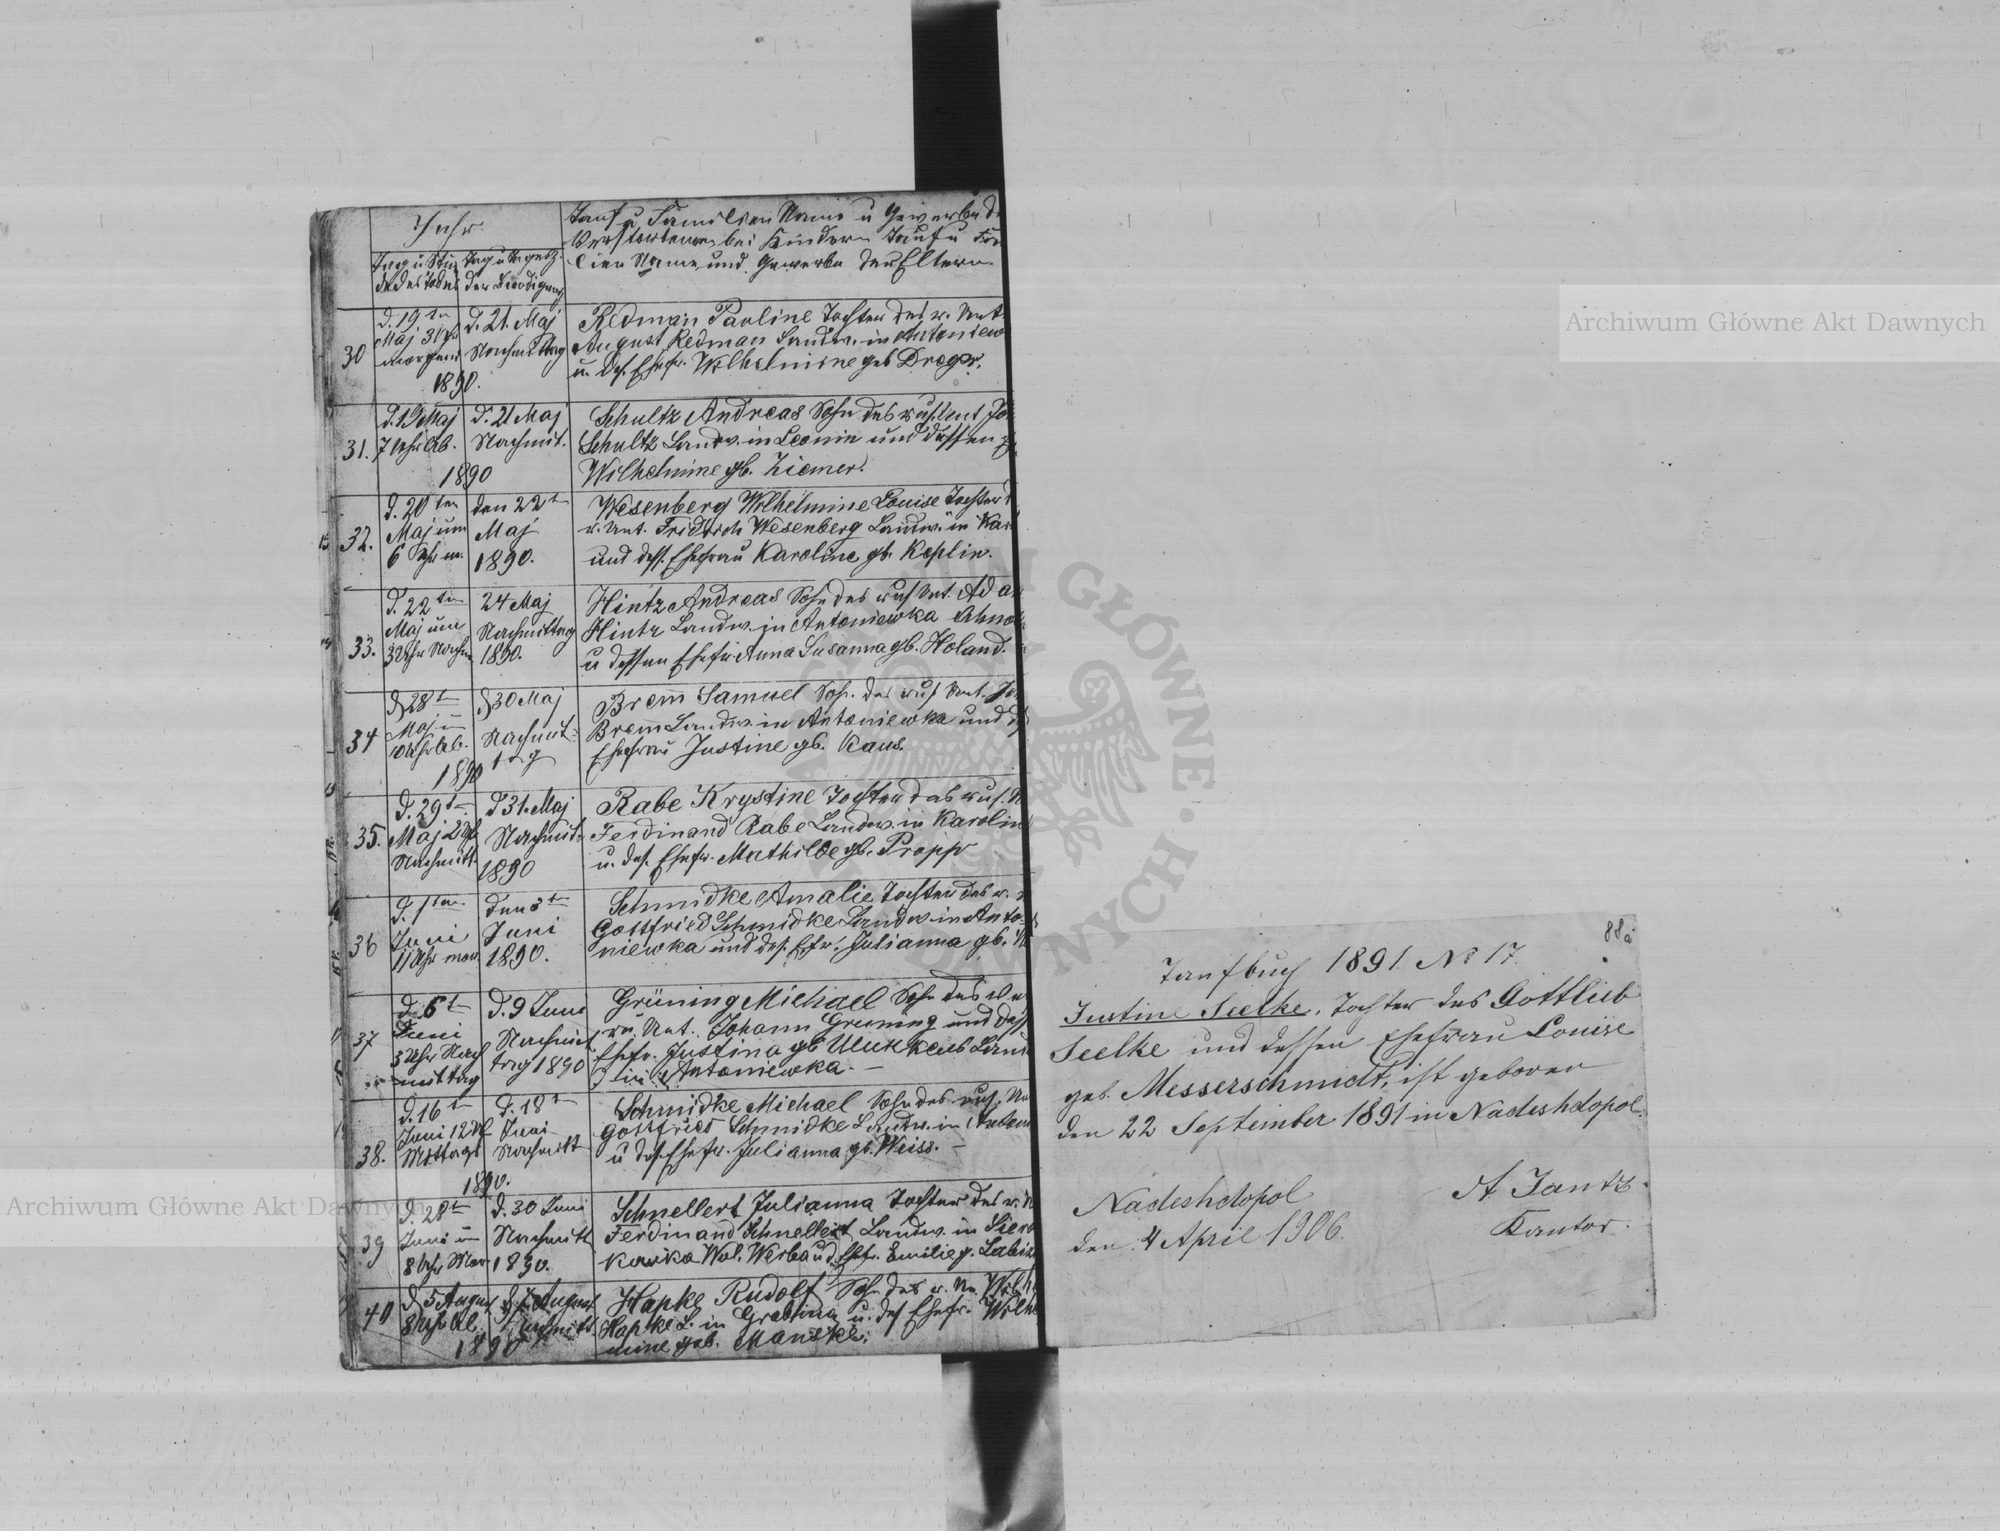 Jahr
Tag u Stun
de des Todes
Tag u Tagesz.
der Beerdigung
Tauf u Familien Name u Gewerbe de
Verstorbenen bei Kindern Tauf u Fa
lien Name und Gewerbe der Eltern
30
d. 19ten
Maj 3 Uhr
morgens
d. 21. Maj
Nachmittag
1890.
Redman Pauline Tochter des r. Unt.
August Redman Landw. in Antoniew
u. des. Ehefr. Wilhelmine geb Dreger.
31.
d. 19 Maj
7 Uhr Ab.
d. 21 Maj
Nachmit.
1890
Schultz Andreas Sohn des rus. Unt. Jo
Schultz Landw. in Leonin und dessen
Wilhelmine gb. Ziemer.
32.
d. 20ten
Maj um
6 Uhr m.
den 22t
Maj
1890.
Wesenberg Wilhelmine Louise Tochter d
r. Unt. Fridrich Wesenberg Landw. in Kar
und dess. Ehefrau Karoline gb. Keplin.
33.
d. 22ten
Maj um
3 Uhr Nachm
24 Maj
Nachmittag
1890.
Hintz Andreas Sohn des rus Unt. Ada
Hintz Landw. in Antoniewka
u dessen Ehefr Anna Susanna gb. Holand.
34
d 28t
Maj um
Uhr Ab.
d 30 Maj
Nachmit-
tag
1890
Brem Samuel Sohn des rus Unt. Jo
Brem Landw. in Antoniewka und d
Ehefrau Justine gb. Kaus.
35.
d. 29t
Maj 2 Uhr
Nachmitt
d 31. Maj
Nachmit.
1890
Rabe Krystine Tochter des rus. U
Ferdinand Rabe Landw. in Karolin
u. des. Ehefr. Mathilde gb. Propp
36
d. 1ten
Juni
11 Uhr mor
den 3t
Juni
1890.
Schmidke Amalie Tochter des r.
Gottfried Schmidke Landw in Anto-
niewka und des. Ehfr. Julianna gb. W
37
d 6t
Juni
3 Uhr Nach
mittag
d. 9 Juni
Nachmit
tag 1890
Grüning Michael Sohn des
ru. Unt. Johann Grüning und dess
Ehefr. Justina gb Land
in Antoniewka. —
38.
d. 16t
Juni 12 Uhr
Mittags
d. 18t
Juni
Nachmitt
1890.
Schmidke Michael Sohn des rus. Un
Gottfried Schmidke Landw. in Anton
u des. Ehefr. Julianna gb. Weiss. —
39
d. 28t
Juni um
8 Uhr Mor
d. 30 Juni
Nachmitt
1890.
Schnellert Julianna Tochter des r. U
Ferdinand Schnellert Landw. in
Wol. Werba u d. Ehfr. Emilie g.
40
d 5 August
8 Uhr Ab.
d 7 August
Nachmitt
1890
Hapke Rudolf Sohn des r. Un. Wilh
Hapke L. in u. des Ehefr. Wilhel
mine geb. Manske.
88a
Taufbuch 1891. No 17.
Justine Seelke, Tochter des Gottlieb
Seelke und dessen Ehefrau Louise
geb. Messerschmidt, ist geboren
den 22 September 1891 in Nadeshdopol.
Nadeshdopol
den 4 April 1906.
A Jantz.
Kantor.
Archiwum Główne Akt Dawnych
Archiwum Główne Akt Dawnych